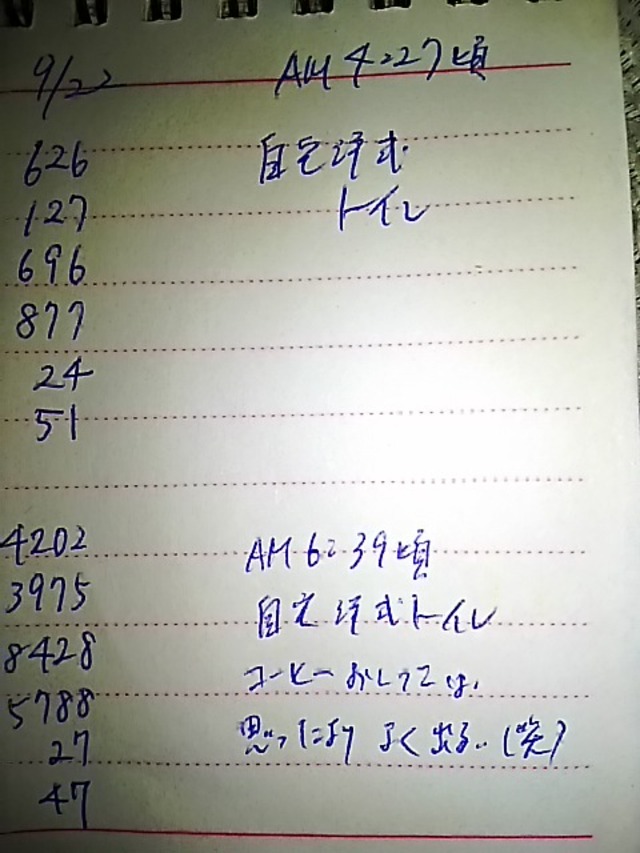 9/22 AM 4:27頃
626 自宅洋式
127 トイレ
696
877
24
51
4202 AM 6:39頃
3975 自宅洋式トイレ
8428 コーヒーおしっこは、
5788 思ったより よく出る..(笑)
27
47